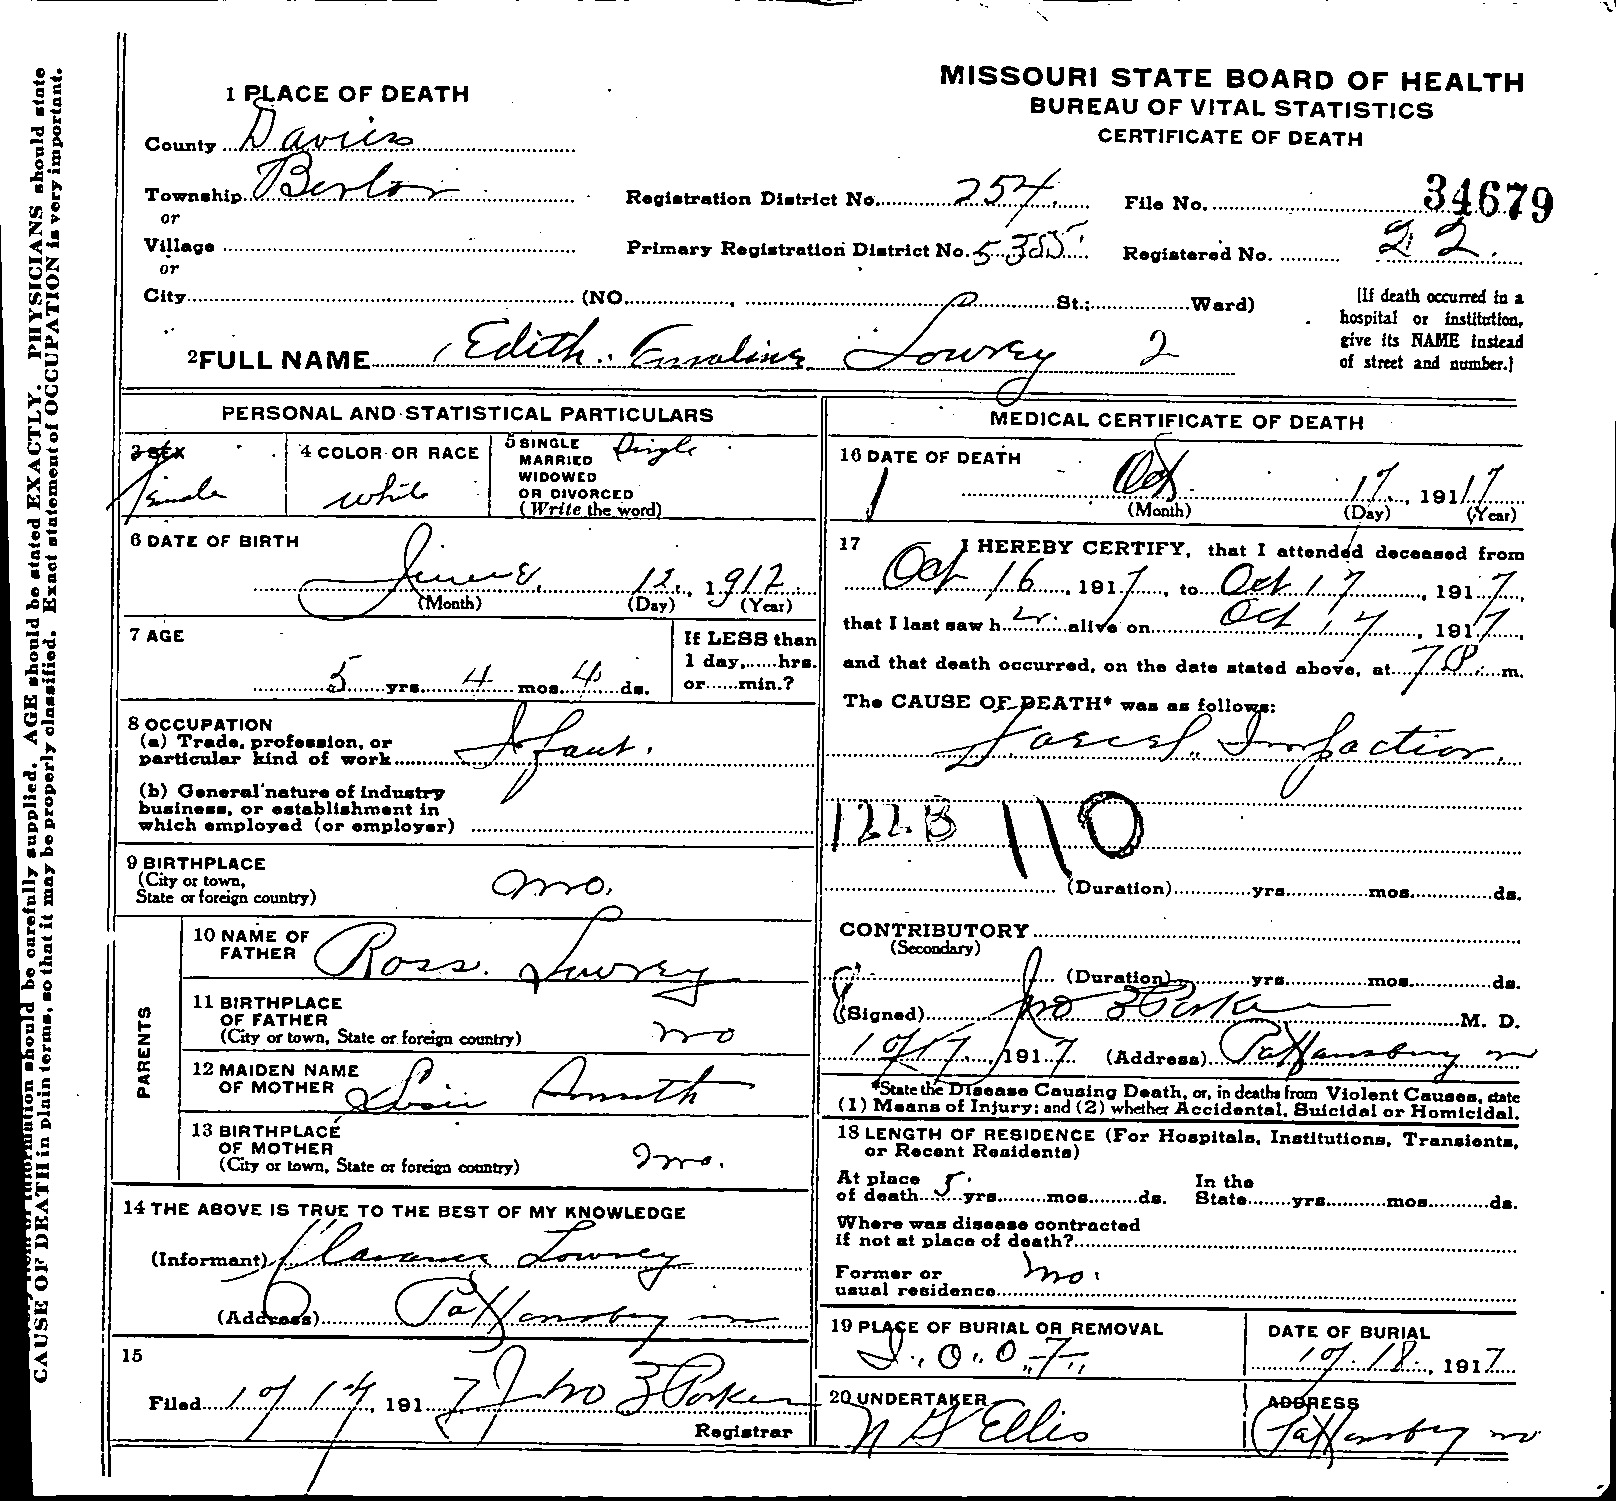 MISSOURI STATE BOARD OF HEALTH
BUREAU OF VITAL STATISTICS
CERTIFICATE OF DEATH
1 PLACE OF DEATH
County Daviess
Township Benton
or
Village
or
City (NO. St.; Ward)
Registration District No. 254
Primary Registration District No. 5355
File No. 34679
Registered No. 22.
[If death occurred in a
hospital or institution,
give its NAME instead
of street and number.]
2 FULL NAME Edith Emaline Lowrey 2
PERSONAL AND STATISTICAL PARTICULARS
3 SEX
Female
4 COLOR OR RACE
white
5 SINGLE
MARRIED
WIDOWED
OR DIVORCED
(Write the word)
Single
6 DATE OF BIRTH
June 12, 1912
(Month) (Day) (Year)
7 AGE
5 yrs. 4 mos. 4 ds.
If LESS than
1 day,......hrs.
or......min.?
8 OCCUPATION
(a) Trade, profession, or
particular kind of work Ifant.
(b) General nature of industry
business, or establishment in
which employed (or employer)
9 BIRTHPLACE
(City or town,
State or foreign country)
Mo.
PARENTS
10 NAME OF
FATHER Ross. Lowrey
11 BIRTHPLACE
OF FATHER
(City or town, State or foreign country) Mo
12 MAIDEN NAME
OF MOTHER Smith
13 BIRTHPLACE
OF MOTHER
(City or town, State or foreign country) Mo.
14 THE ABOVE IS TRUE TO THE BEST OF MY KNOWLEDGE
(Informant) Clarance Lowrey
(Address) Pattonsburg Mo
15
Filed 10/17, 1917 Jno Z Parker
Registrar
MEDICAL CERTIFICATE OF DEATH
16 DATE OF DEATH
1
Oct 17, 1917
(Month) (Day) (Year)
17 I HEREBY CERTIFY, that I attended deceased from
Oct 16, 1917, to Oct 17, 1917,
that I last saw her alive on Oct 17, 1917,
and that death occurred, on the date stated above, at 7 P. m.
The CAUSE OF DEATH* was as follows:
Foecal Impaction.
122.B 110
(Duration) yrs. mos. ds.
CONTRIBUTORY
(Secondary)
(Duration) yrs. mos. ds.
(Signed) Jno Z Parker M. D.
10/17, 1917 (Address) Pattonsburg Mo
*State the Disease Causing Death, or, in deaths from Violent Causes, state
(1) Means of Injury; and (2) whether Accidental, Suicidal or Homicidal.
18 LENGTH OF RESIDENCE (For Hospitals, Institutions, Transients,
or Recent Residents)
At place
of death 5 yrs. mos. ds.
In the
State yrs. mos. ds.
Where was disease contracted
if not at place of death?
Former or
usual residence Mo.
19 PLACE OF BURIAL OR REMOVAL
I.O.O.F.
DATE OF BURIAL
10/18, 1917
20 UNDERTAKER
N G Ellis
ADDRESS
Pattonsburg Mo
information should be carefully supplied. AGE should be stated EXACTLY. PHYSICIANS should state
CAUSE OF DEATH in plain terms, so that it may be properly classified. Exact statement of OCCUPATION is very important.